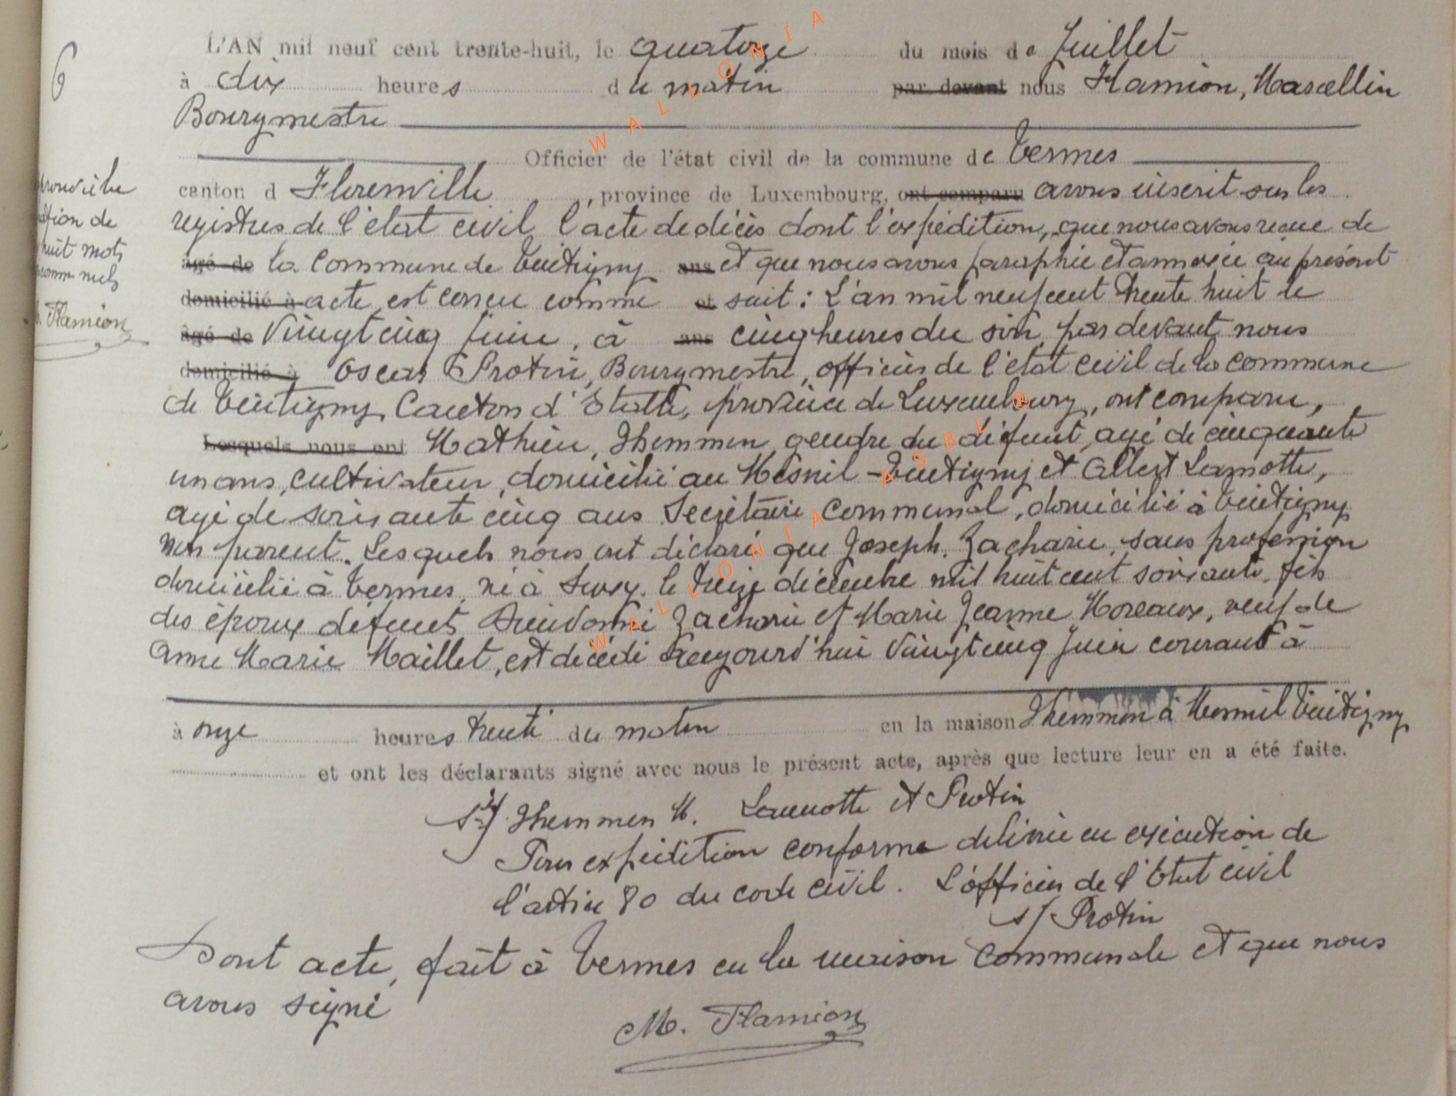 6
L'AN mil neuf cent trente-huit, le quatorze du mois de Juillet
à dix heures du matin par devant nous Flamion, Marcellin
Bourgmestre
Officier de l'état civil de la commune de Termes
canton d Florenville, province de Luxembourg, ont comparu avons inscrit sur les
registres de l'état civil, l'acte de décès dont l'expédition, que nous avons reçue de
âgé de la Commune de Tintigny ans et que nous avons paraphée et annexée au présent
domicilié à acte, est conçu comme et suit : L'an mil neuf cent trente huit le
âgé de Vingt cinq Juin, à ans cinq heures du soir, par devant nous
domicilié à Oscar Protin, Bourgmestre, officier de l'état civil de la commune
de Tintigny, Canton d'Etalle, province de Luxembourg, ont comparu,
Lesquels nous ont Mathieu, Themmen, gendre du défunt, agé de cinquante
un ans, cultivateur, domicilié au Mesnil-Tintigny et Albert Lamotte,
agé de soixante cinq ans Secrétaire Communal, domicilié à Tintigny
non parent. Lesquels nous ont déclaré que Joseph, Zacharie, sans profession
domicilié à Termes, né à Suxy, le treize décembre mil huit cent soixante, fils
des époux défunts Dieudonné Zacharie et Marie Jeanne Moreaux, veuf de
Anne Marie Maillet, est décédé aujourd'hui Vingt cinq Juin courant à
à onze heures trente du matin en la maison Themmen à Mesnil Tintigny
et ont les déclarants signé avec nous le présent acte, après que lecture leur en a été faite.
s/ Themmen M. Lamotte et Protin
Pour expédition conforme délivrée en exécution de
l'article 80 du code civil. L'officier de l'Etat civil
s/ Protin
Dont acte, fait à Termes en la maison Communale et que nous
avons signé
M. Flamion
huit mots
comme nuls
M. Flamion
WALLONIA
ASBL
WALLONIA